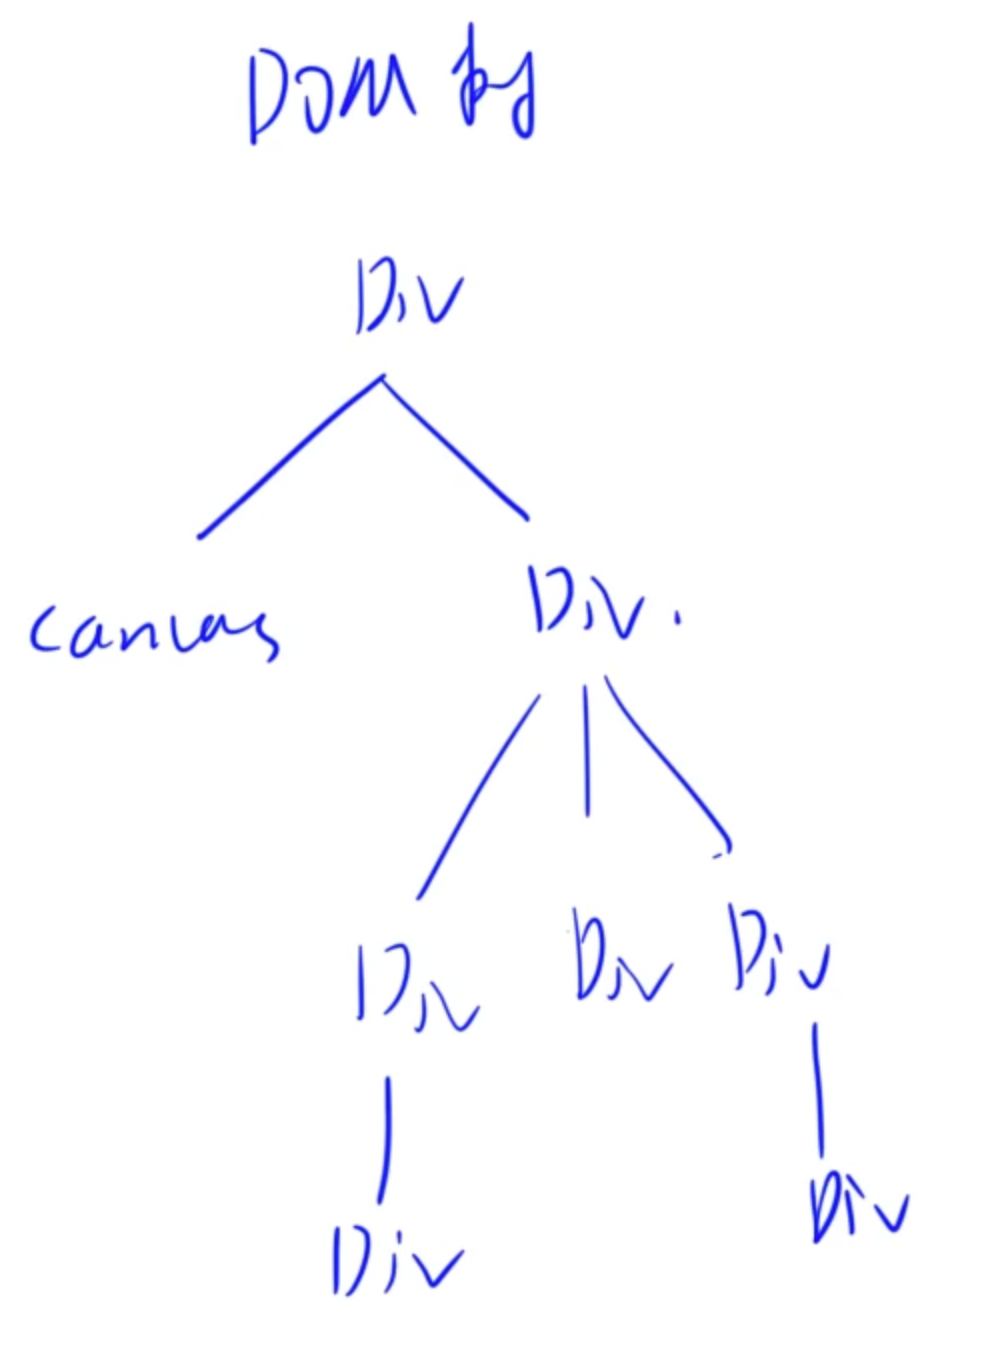 DOM 树
Div
canvas
Div.
Div Div Div
Div
Div